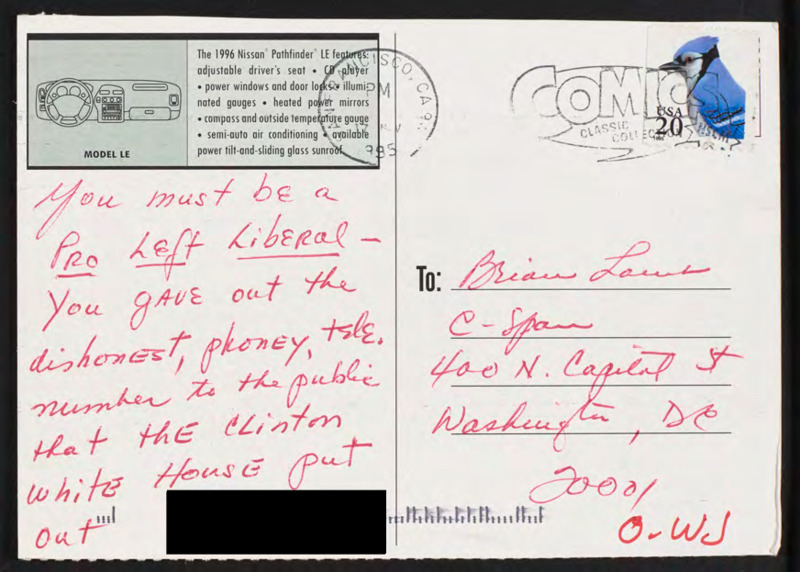 The 1996 Nissan® Pathfinder® LE features:
adjustable driver's seat • CD player
• power windows and door locks • illumi-
nated gauges • heated power mirrors
• compass and outside temperature gauge
• semi-auto air conditioning • available
power tilt-and-sliding glass sunroof.
MODEL LE
You must be a
Pro Left Liberal –
You gave out the
dishonest, phoney, tele.
number to the public
that the Clinton
White House put
out
FRANCISCO, CA
PM
1995
COMIC
CLASSIC
COLLEC
USA
20
To: Brian Lamb
C-Span
400 N. Capitol St
Washington, DC
20001
O-WJ